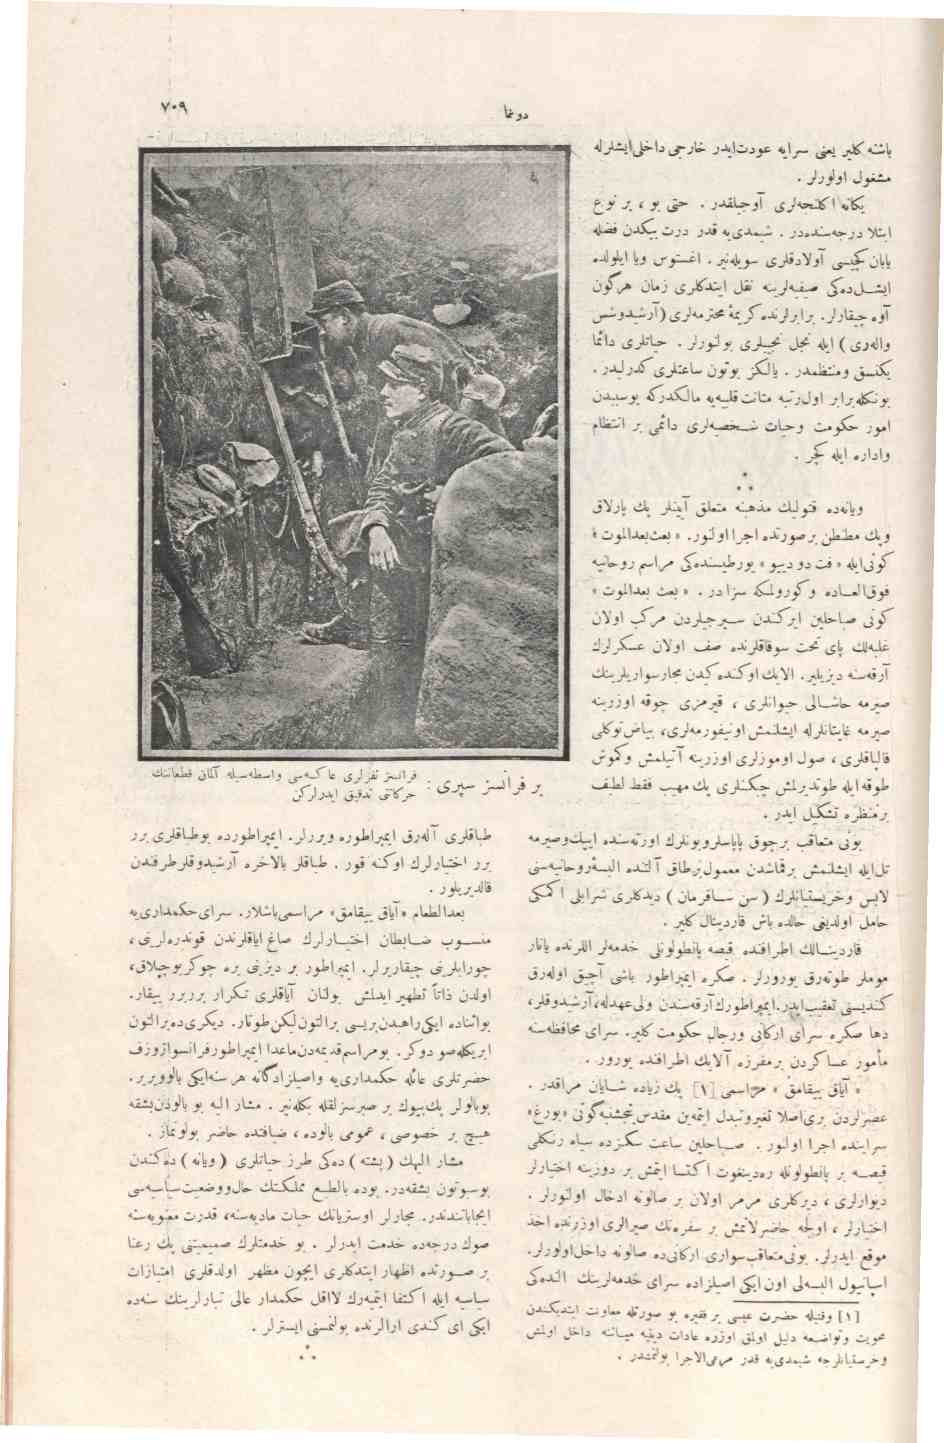 دوننما
٧٠٩
باشنه كلير يعنی سرايه عودت‌ايدر خارجی داخلی‌ايشلرله
مشغول اولورلر .
يكانه اكلنجه‌لری آوجيلقدر . حتی بو ، بر نوع
ابتلا درجه‌سنده‌در . شيمدی‌يه قدر درت بيكدن فضله
يابان كچيسی آولادقلری سويله‌نير . اغستوس ويا ايلولده
ايشل‌ده‌كی صيفيه‌لرينه نقل ايتدكلری زمان هرگون
آوه چيقارلر. برابرلرنده كريمهٔ محترمه‌لری (آرشيدوشس
واله‌ری ) ايله نجل نجيبلری بولنورلر . حياتلری دائما
يكنسق ومنتظمدر . يالكز بوتون ساعتلری كدرليدر .
بونكله‌برابر اول‌رتبه متانت قلبيه‌يه مالكدركه بوسببدن
امور حكومت وحيات شخصيه‌لری دائمی بر انتظام
واداره ايله كچر .
ويانه‌ده قتوليك مذهبنه متعلق آيينلر پك پارلاق
وپك مطنطن برصورتده اجرا اولنور. « بعث‌بعدالموت »
كونی‌ايله « فت دو ديو » يورطيسنده‌كی مراسم روحانيه
فوق‌العاده و كورولمكه سزادر . « بعث بعدالموت »
كونی صباحلين ايركندن سيرجيلردن مركب اولان
غلبه‌لك پای تحت سوقاقلرنده صف اولان عسكرلرك
آرقه‌سنه ديزيلير. الايك اوكنده كيدن مجارسواريلرينك
صيرمه حاشالی حيوانلری ، قيرمزی چوقه اوزرينه
صيرمه غايتانلرله ايشلنمش اونيفورمه‌لری، بياض توكلی
قالپاقلری ، صول اوموزلری اوزرينه آتيلمش وكموش
طوقه‌ايله طوتديرلمش چبكنلری پك مهيب فقط لطيف
برمنظره تشكيل ايدر .
بونی متعاقب برچوق پاپاسلروبونلرك اورته‌سنده ايپك‌وصيرمه
تل‌ايله ايشلنمش برقماشدن معمول‌برطاق آلتنده البسهٔ‌روحانيه‌سنی
لابس وخرستيانلرك ( سن ساقرمان ) ديدكلری شرابلی اكمكی
حامل اولديغی حالده باش قاردينال كلير .
قاردينالك اطرافنده قيصه پانطولونلی خدمه‌لر اللرنده يانار
موملر طوته‌رق يورورلر . صكره ايمپراطور باشی آچيق اوله‌رق
كنديسنی تعقيب‌ايدر.ايمپراطورك‌آرقه‌سندن ولی‌عهدله،آرشيدوقلر،
دها صكره سرای اركانی ورجال حكومت كلير. سرای محافظه‌سنه
مأمور عساكردن برمفرزه آلايك اطرافنده يورور .
« آياق ييقامق » مراسمی [١] پك زياده شايان مراقدر .
عصرلردن بری‌اصلا تغيروتبدل ايتمه‌ين مقدس پنجشنبه‌كونی «بورغ»
سراينده اجرا اولنور . صباحلين ساعت سكزده سياه رنكلی
قيصه بر پانطولونله ره‌دينغوت اكتسا ايتمش بر دوزينه اختيارلر
ديوارلری ، ديركلری مرمر اولان بر صالونه ادخال اولنورلر .
اختيارلر ، اولجه حاضرلانمش بر سفره‌نك صيرالری اوزرنده اخذ
موقع ايدرلر. بونی‌متعاقب‌سواری اركانی‌ده صالونه داخل‌اولورلر.
اسپانيول البسه‌لی اون ايكی اصيلزاده سرای خدمه‌لرينك النده‌كی
[١] وقتيله حضرت عيسی بر فقيره بو صورتله معاونت ايتديكندن
محويت وتواضعه دليل اولمق اوزره عادات دينيه ميانه داخل اولمش
وخرستيانلرجه شيمدی‌يه قدر مرعی‌الاجرا بولنمشدر .
بر فرانسز سپری :
فرانسز نفرلری عاكسه‌سی واسطه‌سيله آلمان قطعاتنك
حركاتنی تدقيق ايدرلركن
طباقلری آله‌رق ايمپراطوره ويررلر. ايمپراطورده بوطباقلری برر
برر اختيارلرك اوكنه قور . طباقلر بالاخره آرشيدوقلرطرفندن
قالديريلور .
بعدالطعام «آياق ييقامق» مراسمی‌باشلار. سرای‌حكمداری‌يه
منسوب ضابطان اختيارلرك صاغ اياقلرندن قوندره‌لرينی،
چورابلرينی چيقاريرلر. ايمپراطور بر ديزينی يره چوكر‌بوچپلاق،
اولدن ذاتاً تطهير ايدلمش بولنان آياقلری تكرار بربرر ييقار.
بوائناده ايكی‌راهبدن‌بريسی برالتون‌لكن‌طوتار. ديكری‌ده‌برالتون
ابريكله‌صو دوكر. بومراسم‌قديمه‌دن‌ماعدا ايمپراطورفرانسواژوزف
حضرتلری عائله حكمداری‌يه واصيلزادكانه هر سنه‌ايكی بالوويرير.
بوبالولر پك‌بيوك بر صبرسزلقله بكله‌نير . مشار اليه بو بالولردن‌بشقه
هيچ بر خصوصی ، عمومی بالوده ، ضيافتده حاضر بولونماز .
مشار اليهك ( پشته ) ده‌كی طرز حياتلری ( ويانه ) ده‌كندن
بوسبوتون بشقه‌در. بوده بالطبع مملكتك حال‌ووضعيت‌سياسيه‌سی
ايجاباتندندر. مجارلر اوستريانك حيات ماديه‌سنه، قدرت معنويه‌سنه
صوك درجه‌ده خدمت ايدرلر . بو خدمتلرك صميميتنی پك رعنا
بر صورتده اظهار ايتدكلری ايچون مظهر اولدقلری امتيازات
سياسيه ايله اكتفا ايتميه‌رك لااقل حكمدار عالی تبارلرينك سنه‌ده
ايكی ای كندی ارالرنده بولنمسنی ايسترلر .